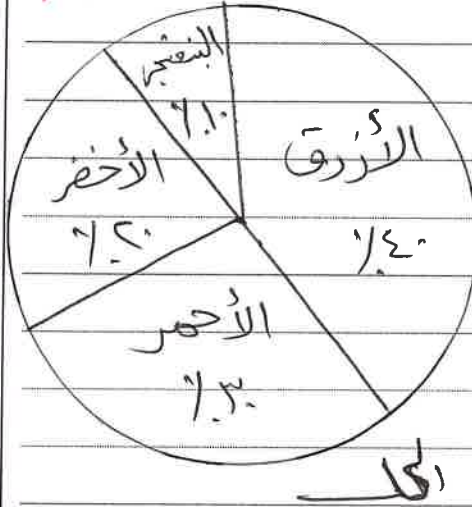 البنفسجي
٪١٠
الأزرق
٪٤٠
الأخضر
٪٢٠
الأحمر
٪٣٠
الحل